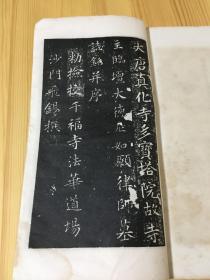 大唐真化寺多寶塔院故寺
主臨壇大德尼如願律師墓
誌銘并序
勅撿挍千福寺法華道場
沙門飛錫撰